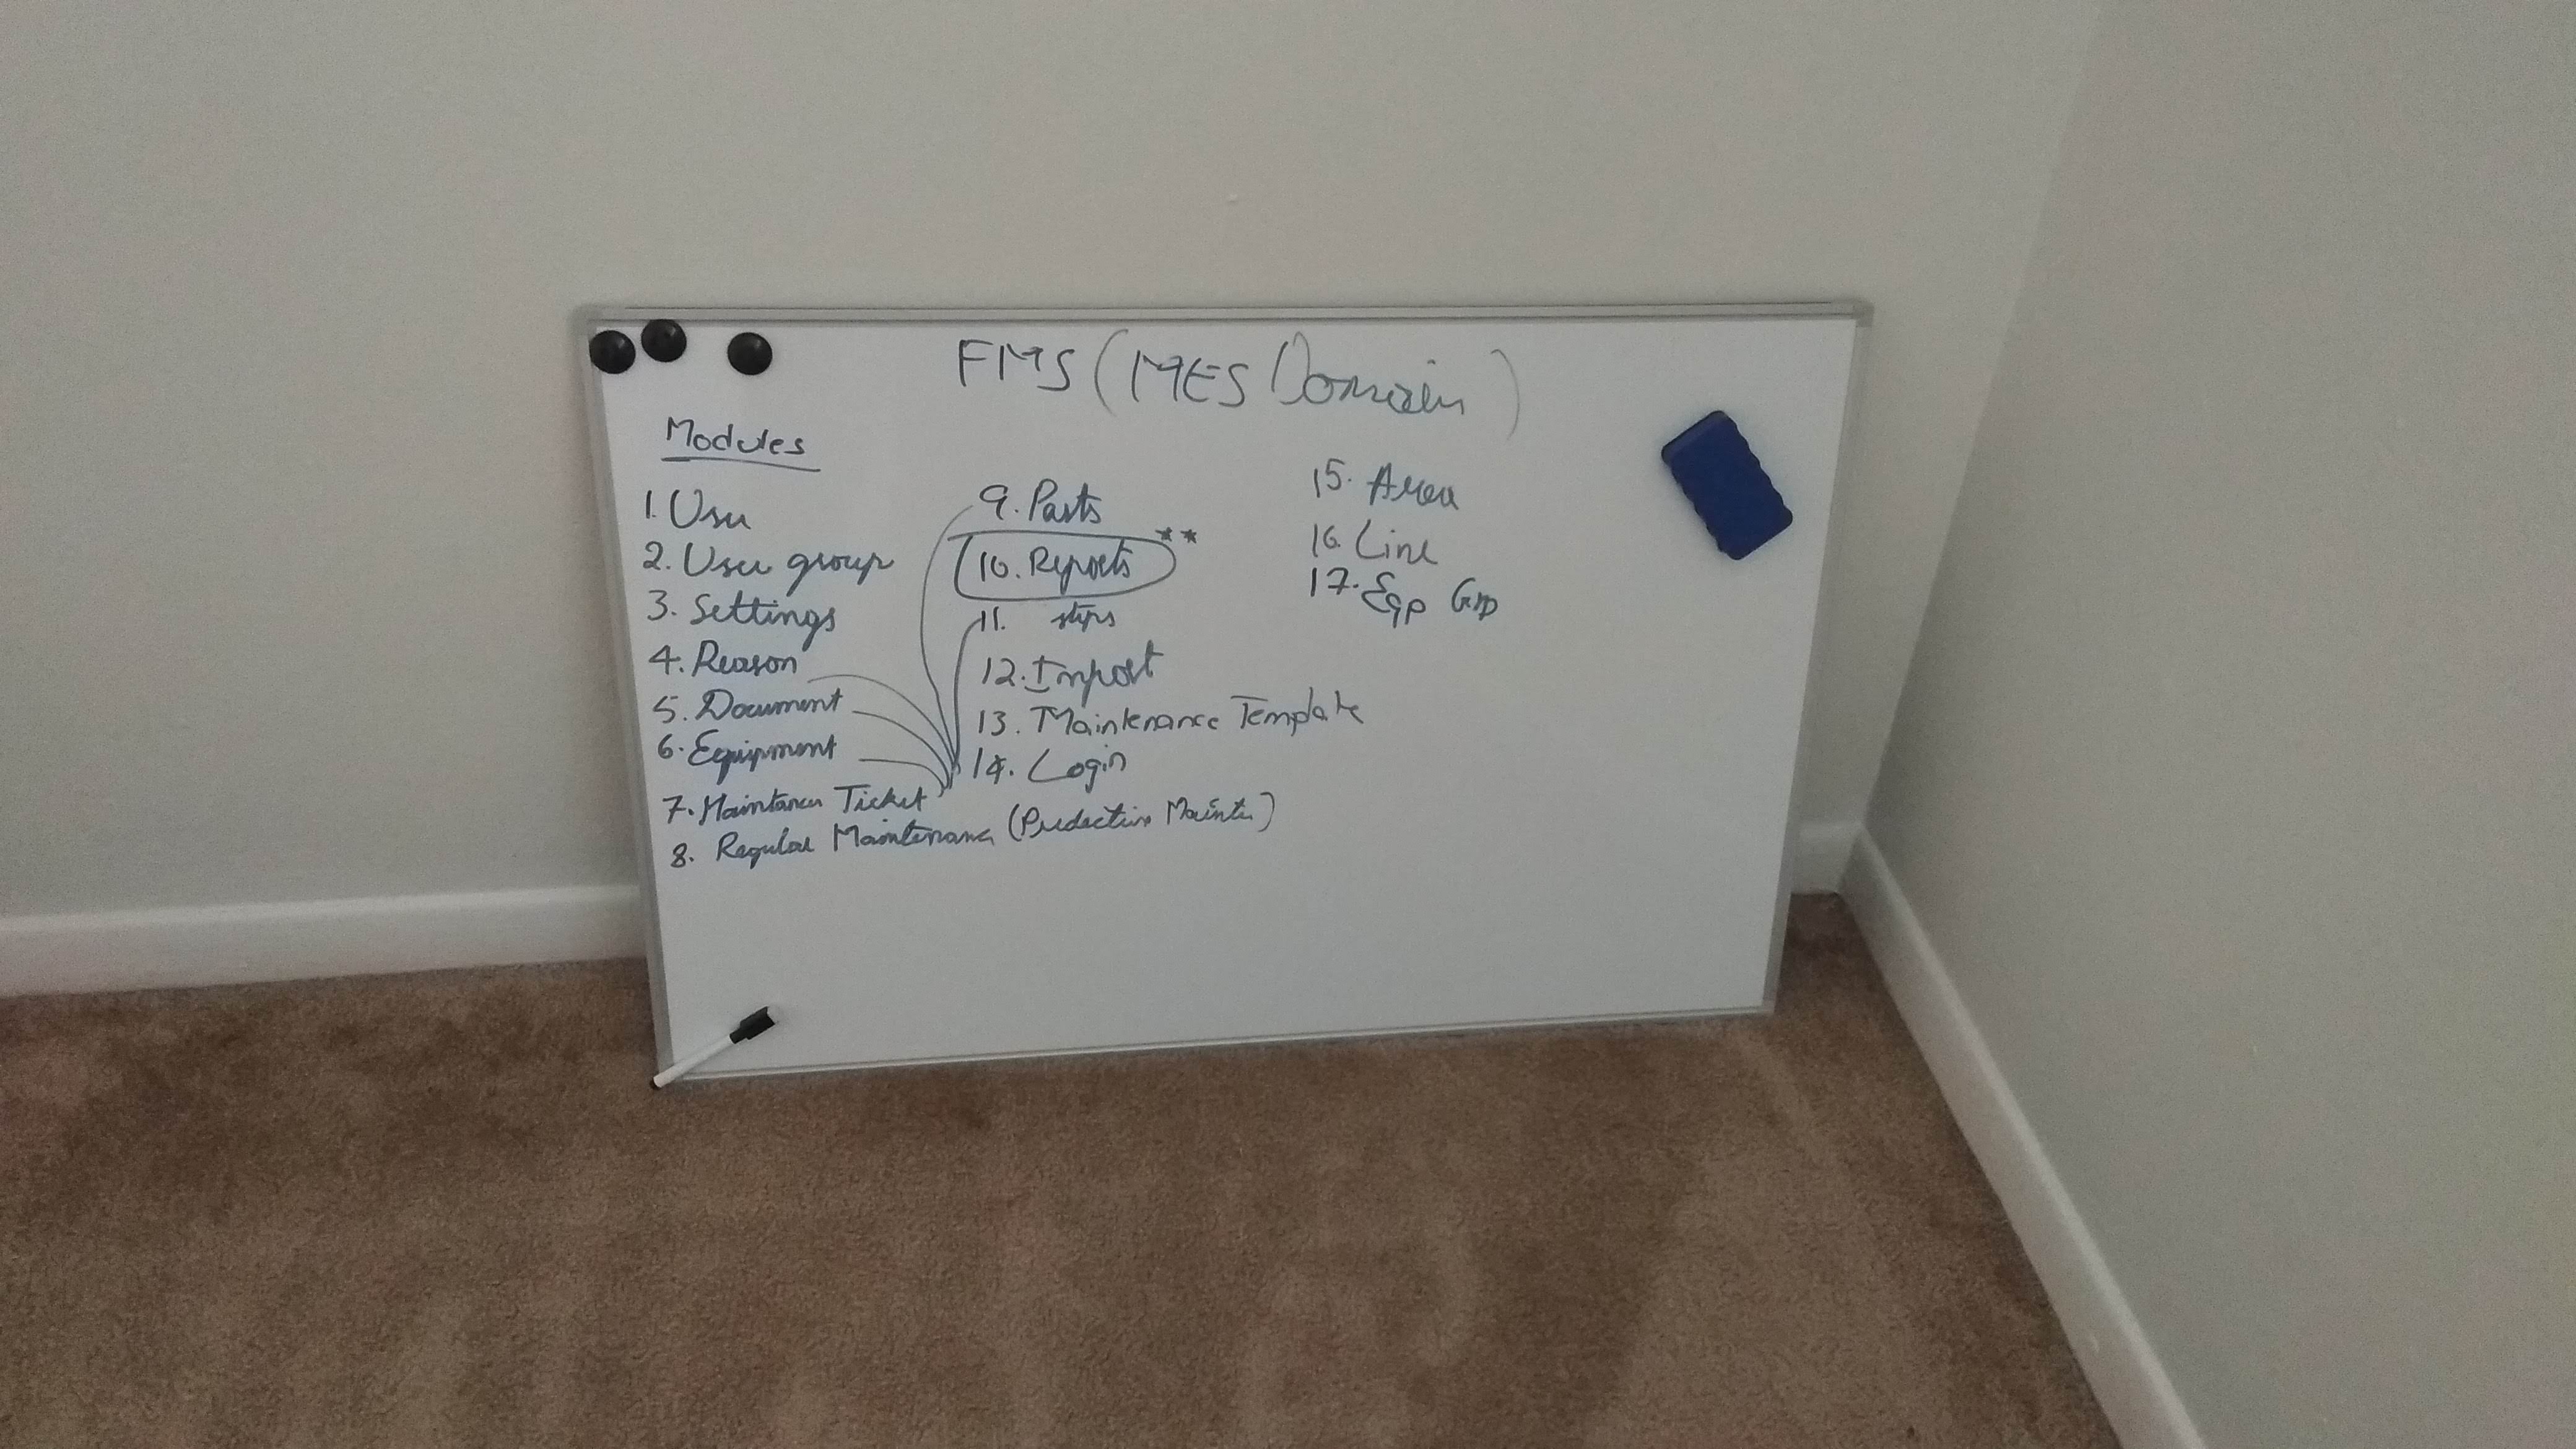 FMS (MES Domain)
Modules
1. User
2. User group
3. Settings
4. Reason
5. Document
6. Equipment
7. Maintance Ticket
8. Regular Maintenance (Predective Mainte)
9. Parts
10. Reports **
11. steps
12. Import
13. Maintenance Template
14. Login
15. Area
16. Line
17. Eqp Grp